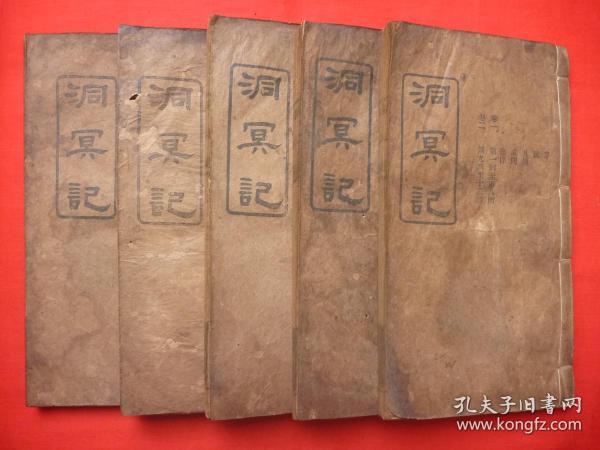 洞冥記
洞冥記
洞冥記
洞冥記
洞冥記
卷一
卷二
孔夫子旧书网
www.kongfz.com